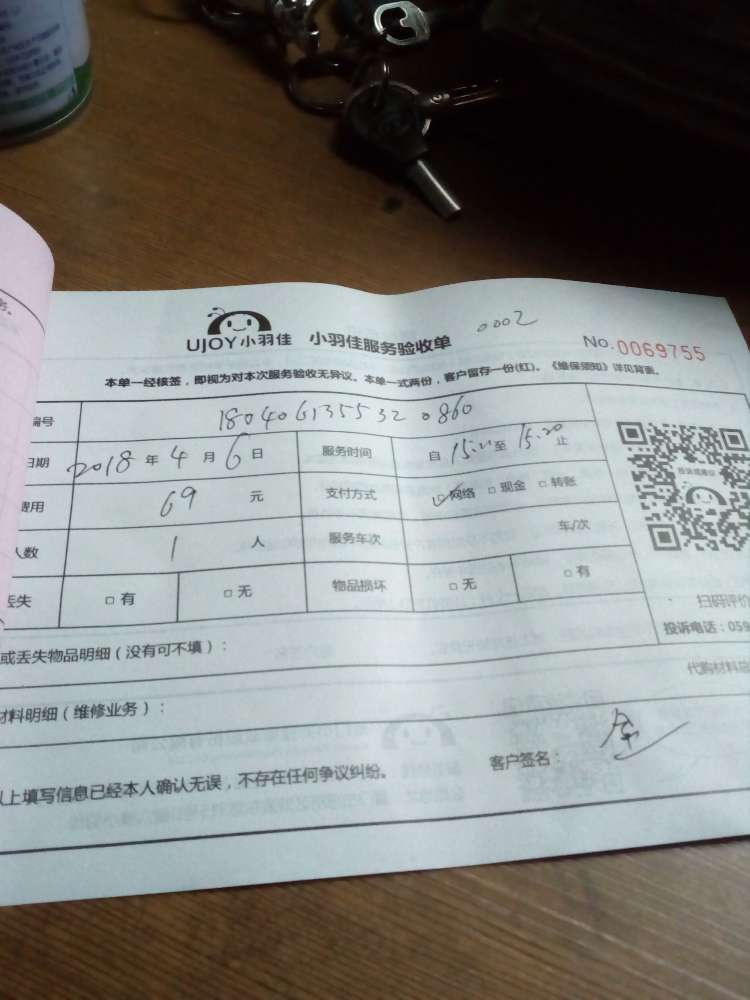 务。
UJOY小羽佳 小羽佳服务验收单 0002 No.0069755
本单一经核签，即视为对本次服务验收无异议。本单一式两份，客户留存一份(红)。《维保须知》详见背面。
编号 1804061355320860
日期 2018 年 4 月 6 日 服务时间 自 至 15.20 止
费用 69 元 支付方式 ☑网络 □现金 □转账
人数 1 人 服务车次 车/次
丢失 □有 □无 物品损坏 □无 □有
扫码评价
投诉电话：059
或丢失物品明细（没有可不填）：
代购材料总
材料明细（维修业务）：
以上填写信息已经本人确认无误，不存在任何争议纠纷。 客户签名：